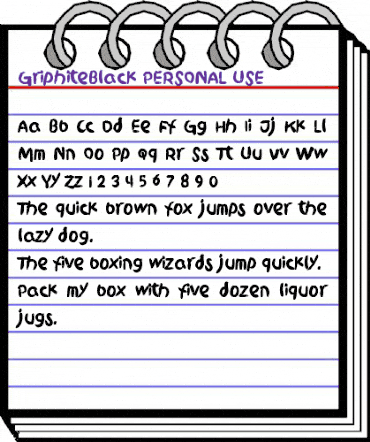 GriphiteBlack PERSONAL USE
Aa Bb Cc Dd Ee Ff Gg Hh Ii Jj Kk Ll
Mm Nn Oo Pp Qq Rr Ss Tt Uu Vv Ww
Xx Yy Zz 1 2 3 4 5 6 7 8 9 0
The quick brown fox jumps over the
lazy dog.
The five boxing wizards jump quickly.
Pack my box with five dozen liquor
jugs.